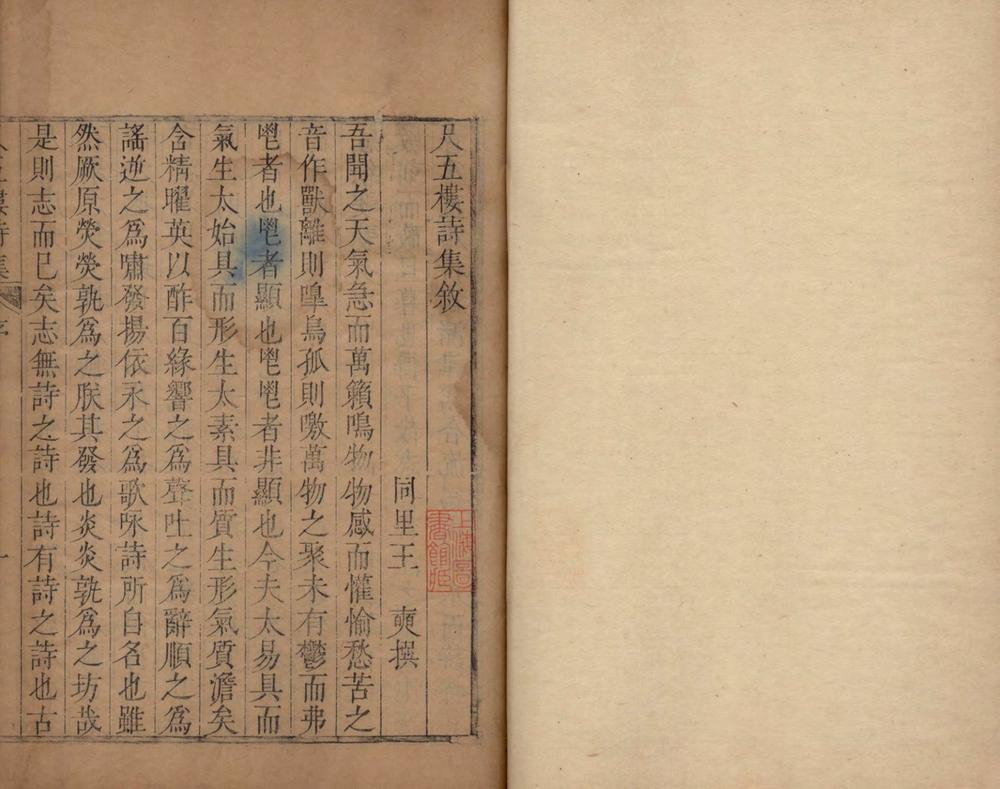 尺五樓詩集敘
同里王 奭撰
吾聞之天氣急而萬籟鳴物物感而懽愉愁苦之
音作獸離則嘷鳥孤則噭萬物之聚未有鬱而弗
鬯者也鬯者顯也鬯鬯者非顯也今夫太易具而
氣生太始具而形生太素具而質生形氣質澹矣
含精曜英以酢百緣響之爲聲吐之爲辭順之爲
謠逆之爲嘯發揚依永之爲歌咏詩所自名也雖
然厥原熒熒孰爲之朕其發也炎炎孰爲之坊哉
是則志而已矣志無詩之詩也詩有詩之詩也古
尺五樓詩集 序 一
上海圖書館藏